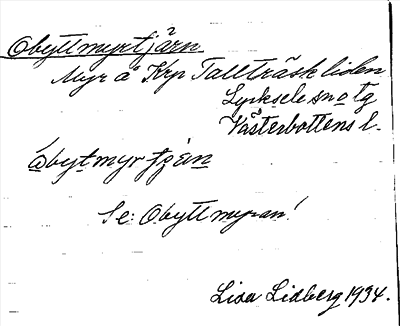 Obyttmyrtjärn
Myr å Krp Tallträskliden
Lycksele sn o tg
Västerbottens l.
åbytmyrtjän
Se: Obyttmyran!
Lisa Lidberg 1934.